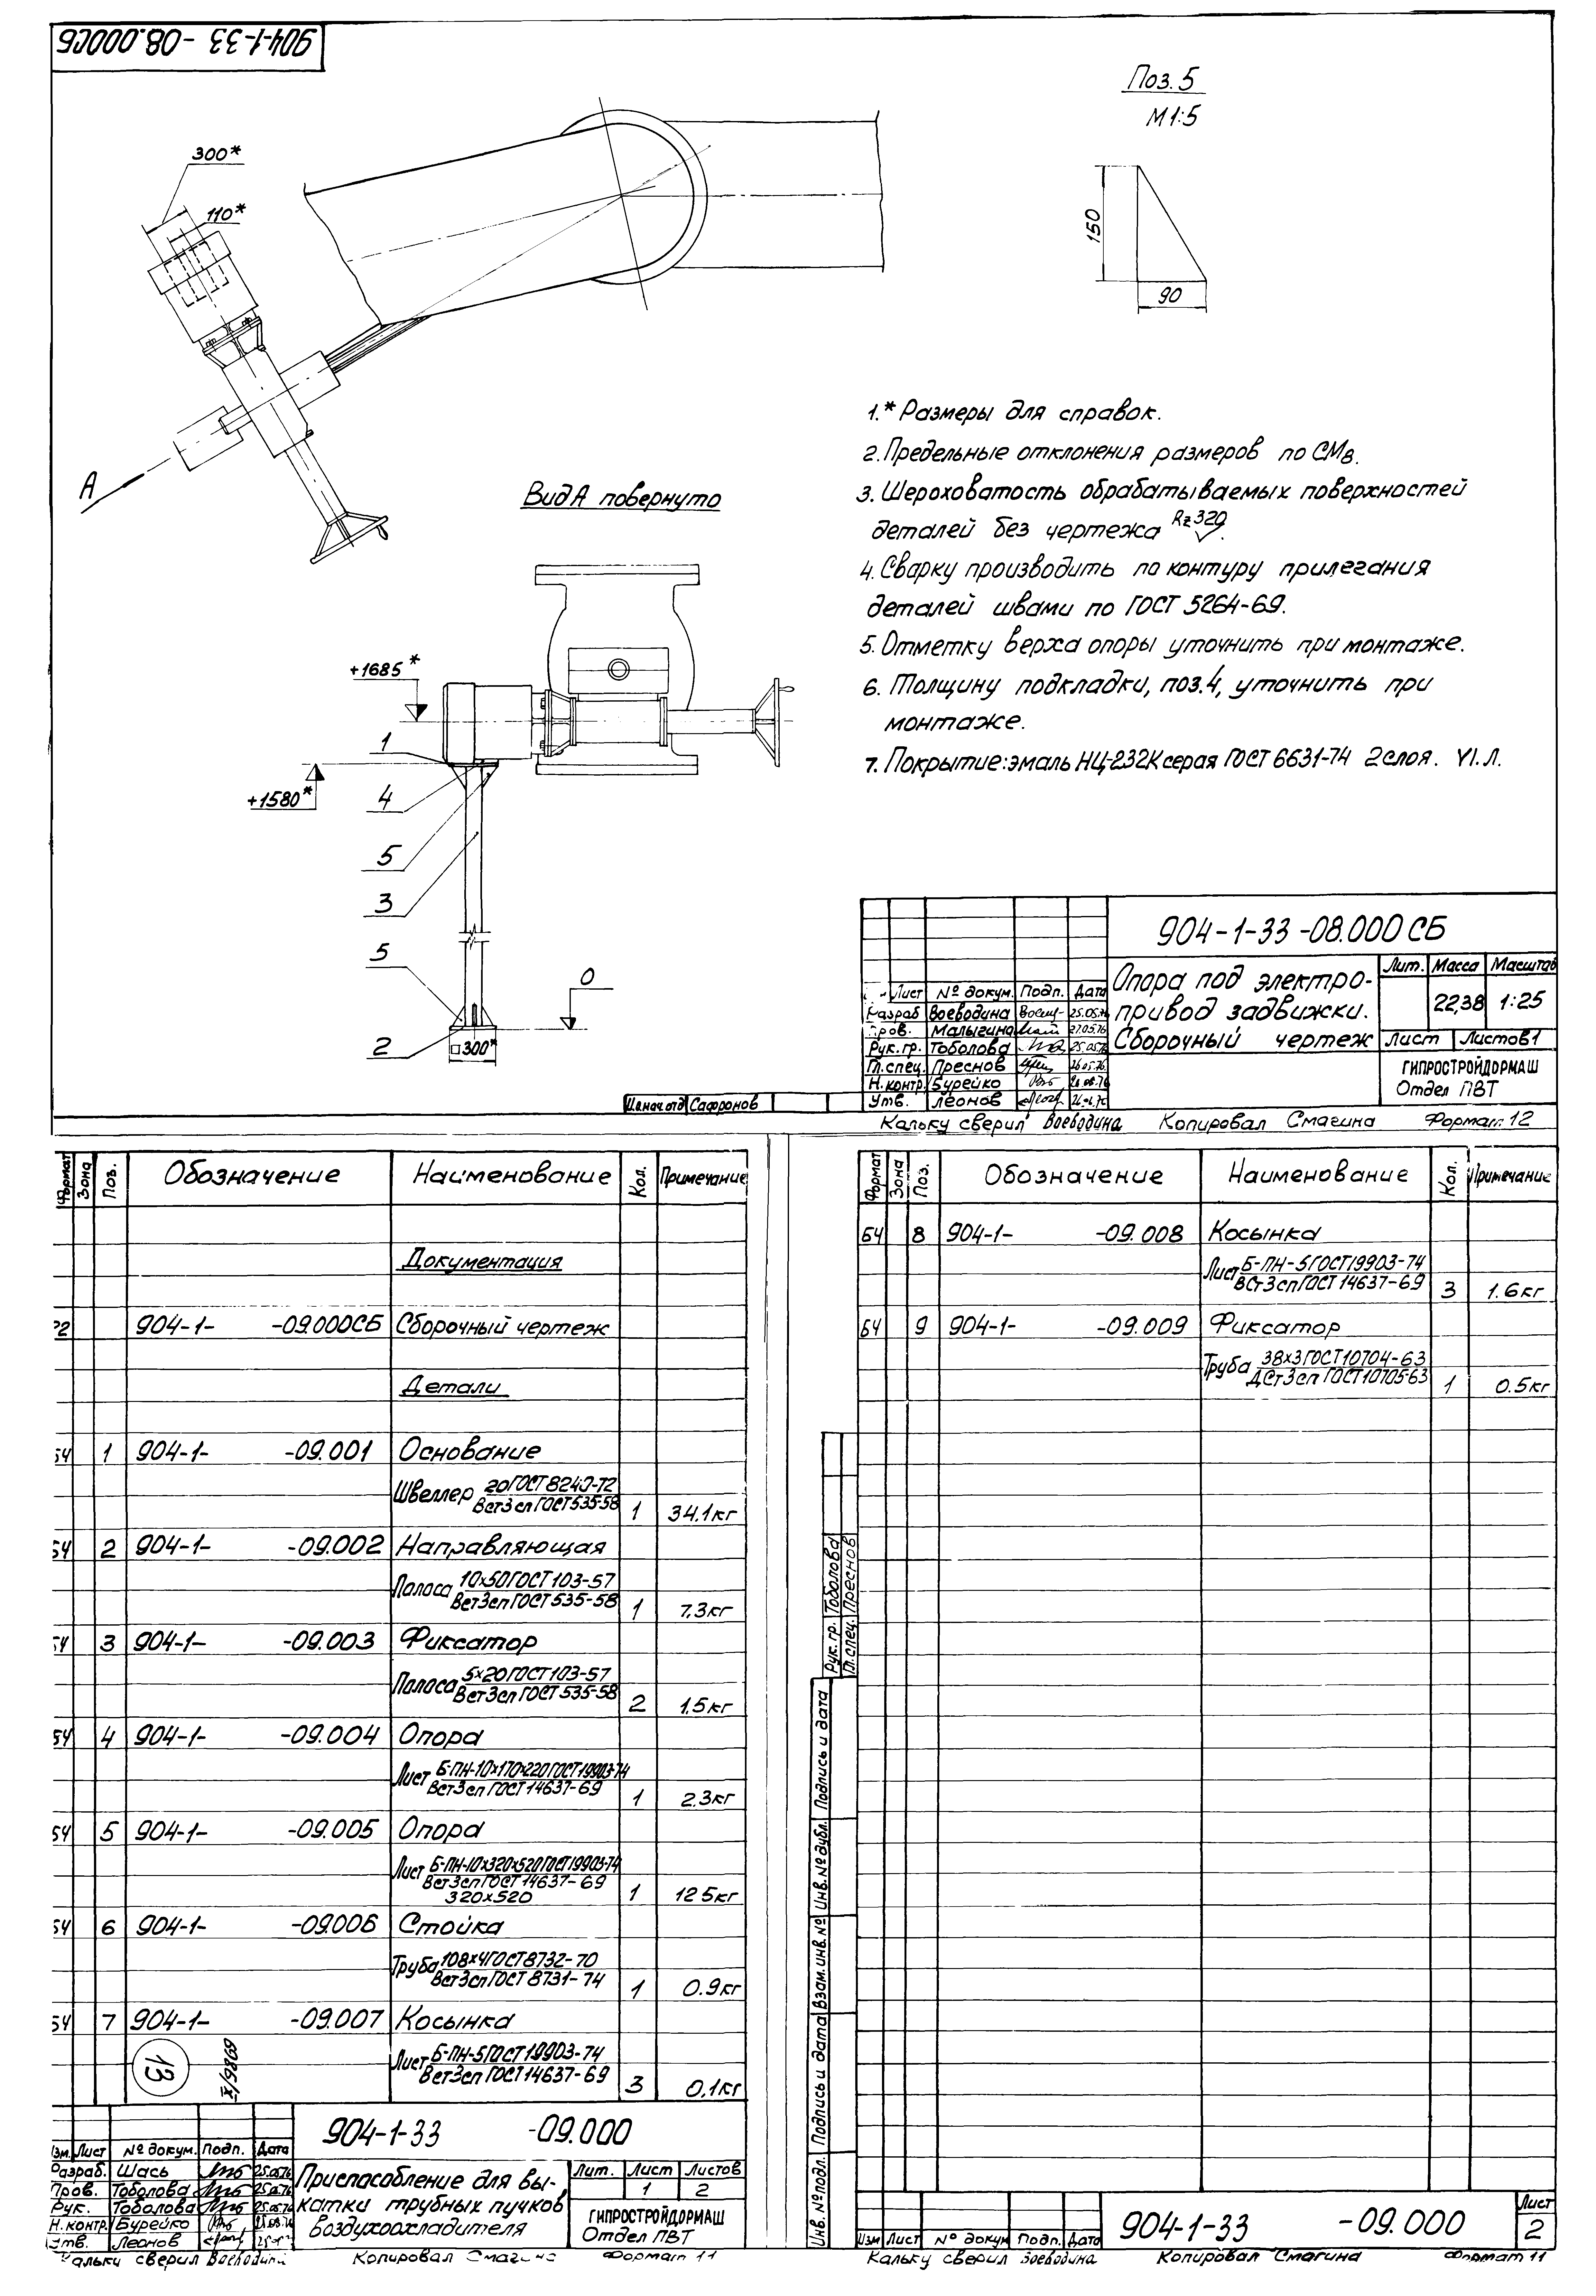 904-1-33 -08.000СБ
Поз. 5
М1:5
300*
110*
150
90
А
Вид А повернуто
+1685*
+1580*
1
4
5
3
5
2
0
□300*
1.* Размеры для справок.
2. Предельные отклонения размеров по СМ8.
3. Шероховатость обрабатываемых поверхностей
деталей без чертежа Rz320.
4. Сварку производить по контуру прилегания
деталей швами по ГОСТ 5264-69.
5. Отметку верха опоры уточнить при монтаже.
6. Толщину подкладки, поз.4, уточнить при
монтаже.
7. Покрытие: эмаль НЦ-232К серая ГОСТ 6631-74 2 слоя. VI.Л.
904-1-33 -08.000 СБ
Опора под электро-
привод задвижки.
Сборочный чертеж
Лит. Масса Масштаб
22,38 1:25
Лист Листов 1
ГИПРОСТРОЙДОРМАШ
Отдел ПВТ
Лист № докум. Подп. Дата
Разраб Воеводина 25.05.76
Пров. Малыгина 27.05.76
Рук. гр. Тоболова 25.05.76
Гл. спец. Преснов 26.05.76.
Н. контр. Бурейко
Утв. Леонов
Сафронов
Кальку сверил Воеводина Копировал Смагина Формат 12
Формат Зона Поз. Обозначение Наименование Кол. Примечание
Документация
22 904-1- -09.000СБ Сборочный чертеж
Детали
БЧ 1 904-1- -09.001 Основание
Швеллер 20 ГОСТ 8240-72
Вст3сп ГОСТ 535-58 1 34.1кг
БЧ 2 904-1- -09.002 Направляющая
Полоса 10х50 ГОСТ 103-57
Вст3сп ГОСТ 535-58 1 7.3кг
БЧ 3 904-1- -09.003 Фиксатор
Полоса 5х20 ГОСТ 103-57
Вст3сп ГОСТ 535-58 2 1.5кг
БЧ 4 904-1- -09.004 Опора
Лист Б-ПН-10х170х220 ГОСТ 19903-74
Вст3сп ГОСТ 14637-69 1 2.3кг
БЧ 5 904-1- -09.005 Опора
Лист Б-ПН-10х320х520 ГОСТ 19903-74
Вст3сп ГОСТ 14637-69
320х520 1 12.5кг
БЧ 6 904-1- -09.006 Стойка
Труба 108х4 ГОСТ 8732-70
Вст3сп ГОСТ 8731-74 1 0.9кг
БЧ 7 904-1- -09.007 Косынка
Лист Б-ПН-5 ГОСТ 19903-74
Вст3сп ГОСТ 14637-69 3 0,1кг
13
904-1-33 -09.000
Изм. Лист № докум. Подп. Дата
Разраб. Шась 25.05.76
Пров. Тоболова 25.05.76
Рук. Тоболова 25.05.76
Н. контр. Бурейко
Утв. Леонов
Приспособление для вы-
катки трубных пучков
воздухоохладителя
Лит. Лист Листов
1 2
ГИПРОСТРОЙДОРМАШ
Отдел ПВТ
Кальку сверил Воеводина Копировал Смагина Формат 11
Формат Зона Поз. Обозначение Наименование Кол. Примечание
БЧ 8 904-1- -09.008 Косынка
Лист Б-ПН-5 ГОСТ 19903-74
Вст3сп ГОСТ 14637-69 3 1.6кг
БЧ 9 904-1- -09.009 Фиксатор
Труба 38х3 ГОСТ 10704-63
ДСт3сп ГОСТ 10705-63 1 0.5кг
Рук. гр. Тоболова
Гл. спец. Преснов
Инв. № подл. Подпись и дата Взам. инв. № Инв. № дубл. Подпись и дата
Изм Лист № докум Подп. Дата
904-1-33 -09.000
Лист
2
Кальку сверил Воеводина Копировал Смагина Формат 11